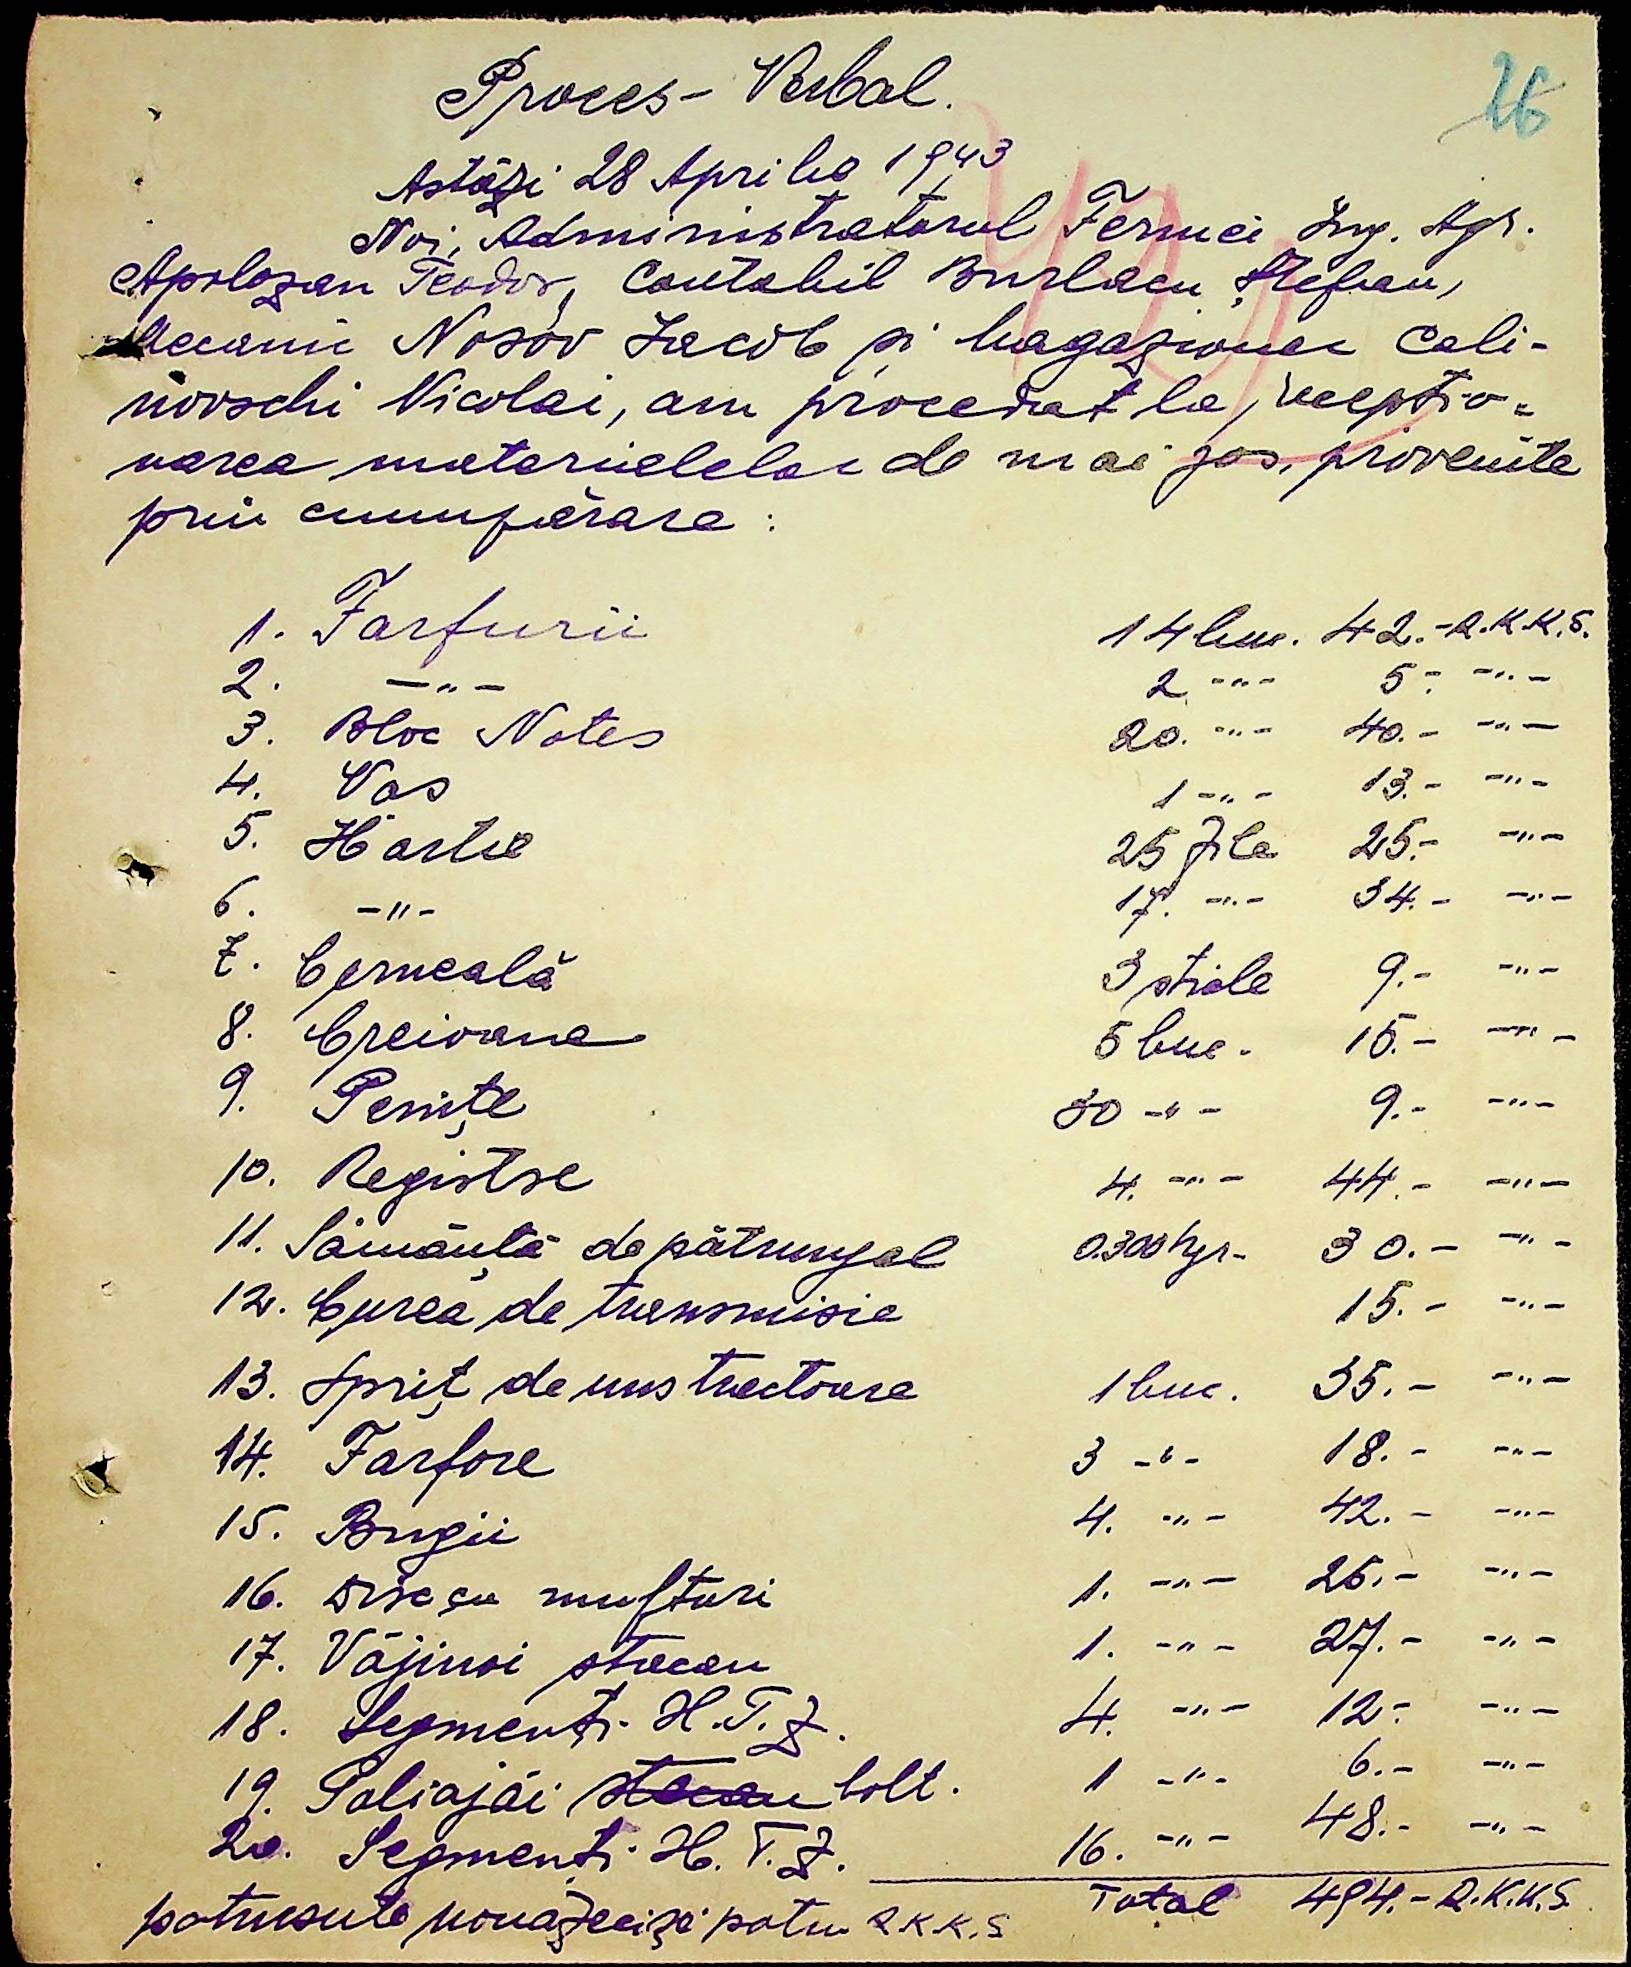 26
Proces-Verbal.
Astăzi 28 Aprilie 1943
Noi, Administratorul Fermei Ing. Agr.
Apolozan Teodor, Contabil Burlacu Ștefan,
Mecanic Nosov Iacob și magazioner Cali-
novschi Nicolai, am procedat la recepțio-
narea materialelor de mai jos, provenite
prin cumpărare:
1. Farfurii 14 buc. 42.- R.K.K.S.
2. -"- 2 -"- 5.- -"-
3. Bloc Notes 20. -"- 40.- -"-
4. Vas 1 -"- 13.- -"-
5. Hârtie 25 file 25.- -"-
6. -"- 17. -"- 34.- -"-
7. Cerneală 3 sticle 9.- -"-
8. Creioane 5 buc. 15.- -"-
9. Penițe 30 -"- 9.- -"-
10. Registre 4. -"- 44.- -"-
11. Sămânță de pătrunjel 0.300 kgr- 30.- -"-
12. Curea de transmisie 15.- -"-
13. Spriț de uns tractoare 1 buc. 35.- -"-
14. Farfore 3 -"- 18.- -"-
15. Bugii 4. -"- 42.- -"-
16. Disc cu mufturi 1. -"- 25.- -"-
17. Văjinoi stacan 1. -"- 27.- -"-
18. Segmenți H.T.Z. 4. -"- 12.- -"-
19. Paliajäi bolt. 1 -"- 6.- -"-
20. Segmenți H.T.Z. 16. -"- 48.- -"-
Total 494.- R.K.K.S.
patrusute nouăzeciși patru R.K.K.S